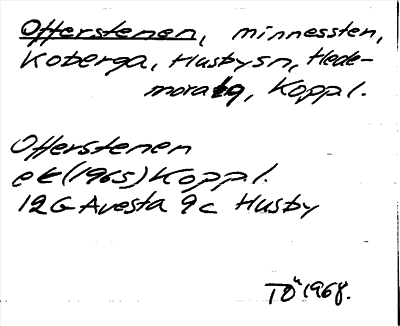 Offerstenen, minnessten,
Koberga, Husby sn, Hede-
mora tg, Koppl.
Offerstenen
ek (1965) Koppl.
12G Avesta 9c Husby
TÖ 1968.